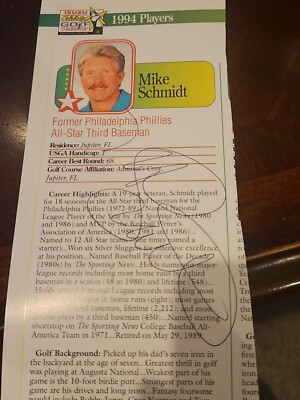 ISUZU
GOLF
1994 Players
Mike
Schmidt
Former Philadelphia Phillies
All-Star Third Baseman
Residence: Jupiter, FL
USGA Handicap: 1
Career Best Round: 68
Golf Course Affiliation: Admiral's Cove,
Jupiter, FL
Career Highlights: A 19-year veteran, Schmidt played
for 18 seasons as the All-Star third baseman for the
Philadelphia Phillies (1972-89)... Named National
League Player of the Year by The Sporting News (1980
and 1986) and MVP by the Baseball Writer's
Association of America (1980, 1981 and 1986)...
Named to 12 All-Star teams (nine times named a
starter)...Won six Silver Sluggers for offensive excellence
at his position...Named Baseball Player of the Decade
(1980s) by The Sporting News...Holds numerous major-
league records including most home runs by a third
baseman in a season (48 in 1980) and lifetime (548)...
league records including
home runs (eight), most games
third baseman, lifetime (2,212), and most
double plays by a third baseman (450)...Named starting
shortstop on The Sporting News College Baseball All-
America Team in 1971...Retired on May 29, 1989.
Golf Background: Picked up his dad's seven iron in the
backyard at the age of seven...Greatest thrill in golf
was playing at Augusta National...Weakest part of his
game is the 10-foot birdie putt...Strongest parts of his
game are his drives and long irons...Fantasy foursome
would include Bobby Jones, Greg Norman and